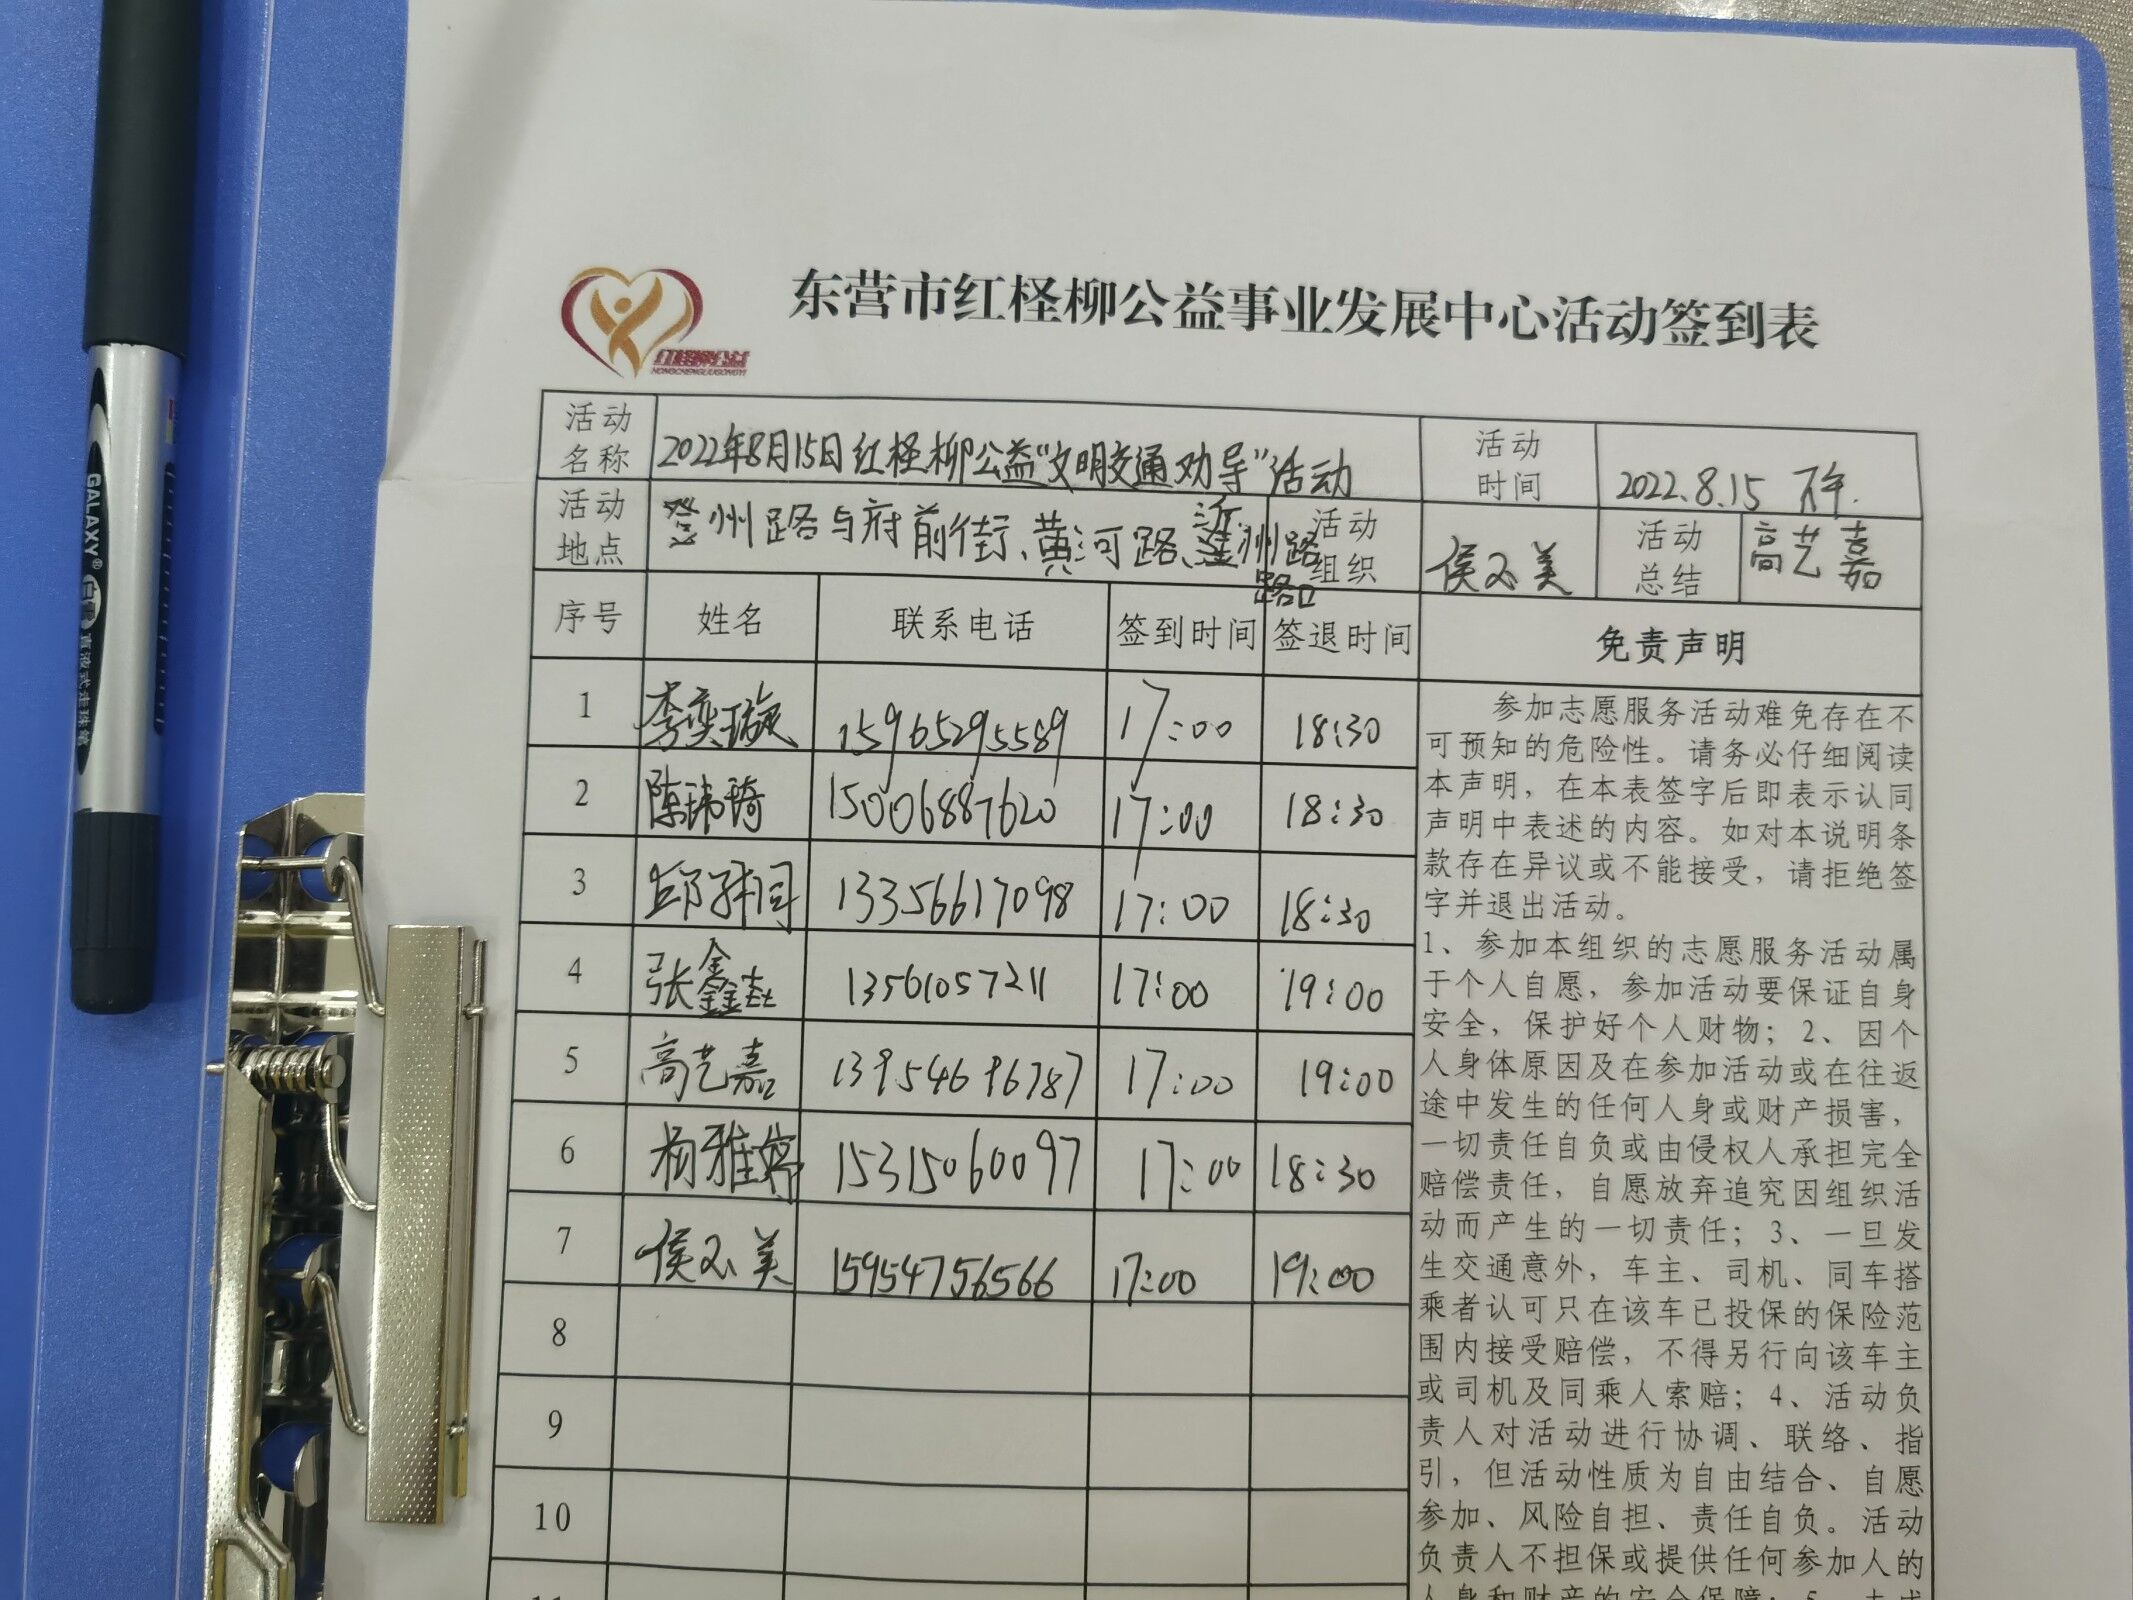 东营市红柽柳公益事业发展中心活动签到表
红柽柳公益
HONGCHENGLIUGONGYI
活动名称 2022年8月15日红柽柳公益"文明交通劝导"活动 活动时间 2022.8.15 下午.
活动地点 登州路与府前街、黄河路、 州路 路口 活动组织 侯 美 活动总结 高艺嘉
序号 姓名 联系电话 签到时间 签退时间 免责声明
1 李奕璇 15965295589 17:00 18:30
2 陈玮琦 15006887620 17:00 18:30
3 邱 同 13356617098 17:00 18:30
4 张鑫 13561057211 17:00 19:00
5 高艺嘉 13954696787 17:00 19:00
6 杨雅婷 15315060097 17:00 18:30
7 侯 美 15954756566 17:00 19:00
8
9
10
11
参加志愿服务活动难免存在不
可预知的危险性。请务必仔细阅读
本声明，在本表签字后即表示认同
声明中表述的内容。如对本说明条
款存在异议或不能接受，请拒绝签
字并退出活动。
1、参加本组织的志愿服务活动属
于个人自愿，参加活动要保证自身
安全，保护好个人财物；2、因个
人身体原因及在参加活动或在往返
途中发生的任何人身或财产损害，
一切责任自负或由侵权人承担完全
赔偿责任，自愿放弃追究因组织活
动而产生的一切责任；3、一旦发
生交通意外，车主、司机、同车搭
乘者认可只在该车已投保的保险范
围内接受赔偿，不得另行向该车主
或司机及同乘人索赔；4、活动负
责人对活动进行协调、联络、指
引，但活动性质为自由结合、自愿
参加、风险自担、责任自负。活动
负责人不担保或提供任何参加人的
人身和财产的安全保障；5、未成
GALAXY® 白雪 直液式走珠笔